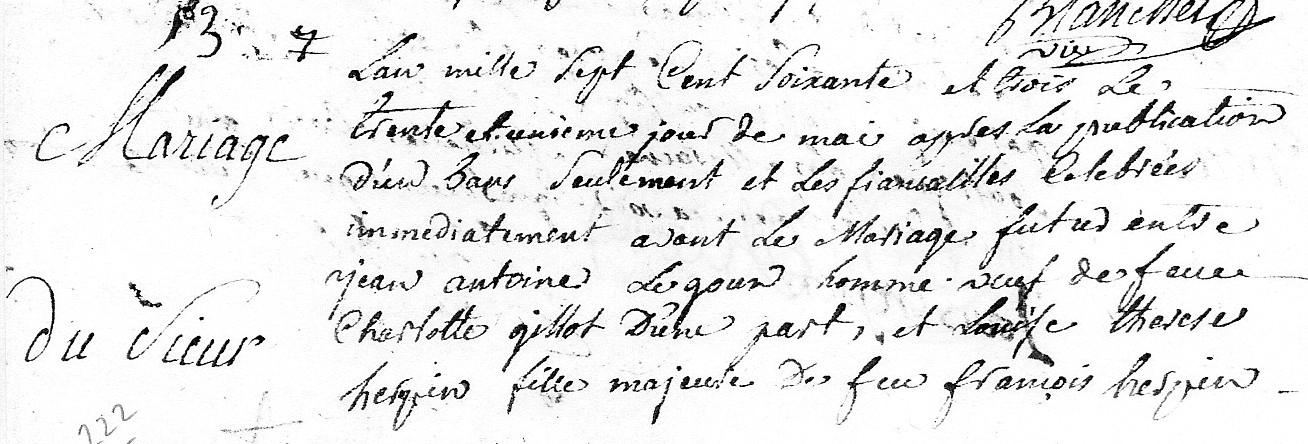 Blanchet
vic
13. 7
Lan mille Sept Cent Soixante et trois Le
Mariage
trente et unieme jour de mai apres La publication
D'un Bans Seulement et Les fiansailles Celebrées
immediatement avant Le Mariage futur entre
jean antoine Legour homme veuf de feue
du Sieur
Charlotte gillot D'une part, et Louise therese
herpin fille majeure De feu françois herpin
222